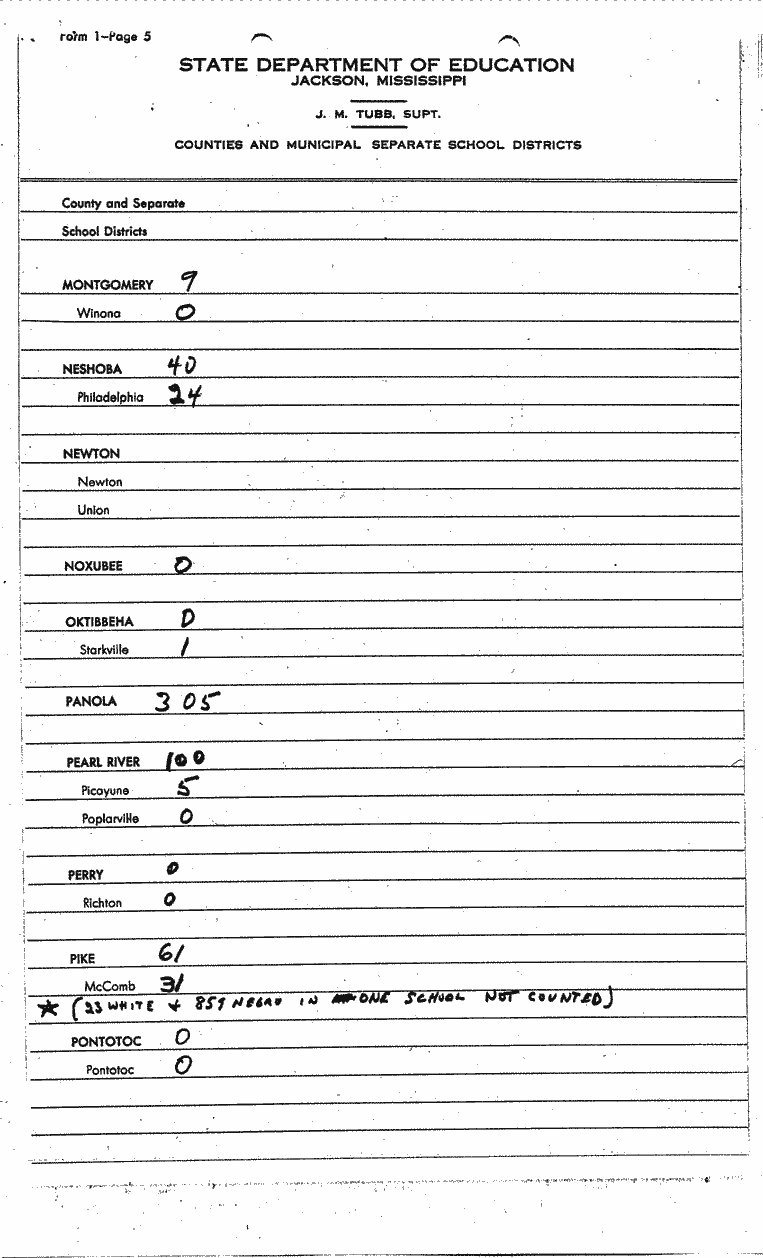 Form 1-Page 5
STATE DEPARTMENT OF EDUCATION
JACKSON, MISSISSIPPI
J. M. TUBB, SUPT.
COUNTIES AND MUNICIPAL SEPARATE SCHOOL DISTRICTS
County and Separate
School Districts
MONTGOMERY 9
Winona 0
NESHOBA 40
Philadelphia 24
NEWTON
Newton
Union
NOXUBEE 0
OKTIBBEHA 0
Starkville 1
PANOLA 305
PEARL RIVER 100
Picayune 5
Poplarville 0
PERRY 0
Richton 0
PIKE 61
McComb 31
★ (23 WHITE + 859 NEGRO IN ONE SCHOOL NOT COUNTED)
PONTOTOC 0
Pontotoc 0